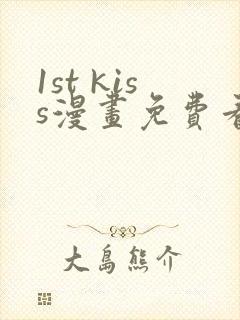 1st kis
s漫畫免費看
大島熊介